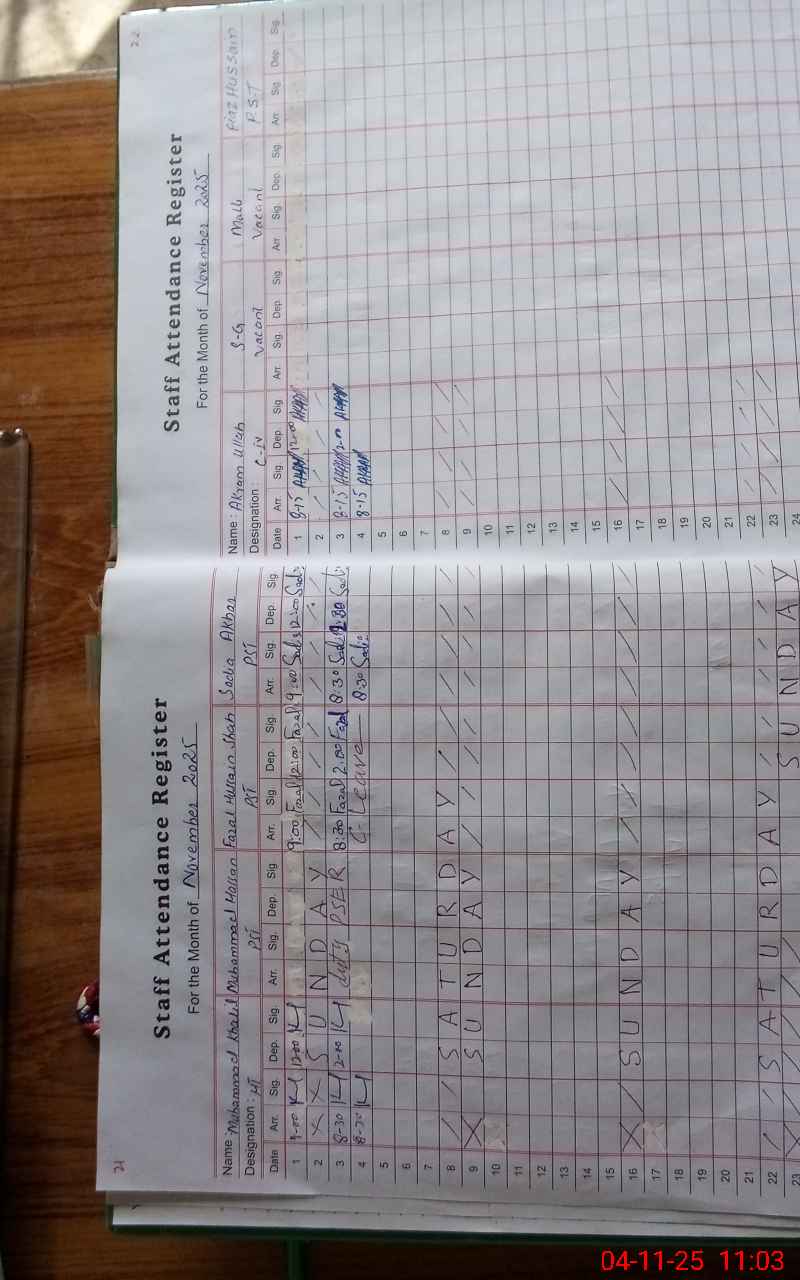 21
Staff Attendance Register
For the Month of November 2025
Name: Muhammad Khalil Muhammad Hassan Fazal Hussain Shah Sadia Akbar
Designation: HT PST PST PST
Date Arr. Sig. Dep. Sig. Arr. Sig. Dep. Sig Arr. Sig. Dep. Sig. Arr. Sig Dep. Sig
1 9-00 KH 12-00 KH 9:00 Fazal 12:00 Fazal 9:00 Sadia 12:00 Sadia
2 X X S U N D A Y
3 8-30 KH 2-00 KH duty PSER 8:30 Fazal 2:00 Fazal 8:30 Sadia
4 8-30 KH C-Leave 8:30 Sadia
5
6
7
8 S A T U R D A Y
9 X S U N D A Y
10
11
12
13
14
15
16 X S U N D A Y
17
18
19
20
21
22 S A T U R D A Y
23 X S U N D A Y
22
Staff Attendance Register
For the Month of November 2025
Name: Akram Ullah S-G Malb Riaz Hussain
Designation: C-IV Vacant Vacant P.S.T
Date Arr. Sig. Dep. Sig. Arr. Sig. Dep. Sig Arr Sig. Dep. Sig. Arr. Sig Dep. Sig.
1 8-15 12-00
2
3 8-15 2-00
4 8-15
5
6
7
8
9
10
11
12
13
14
15
16
17
18
19
20
21
22
23
24
04-11-25 11:03